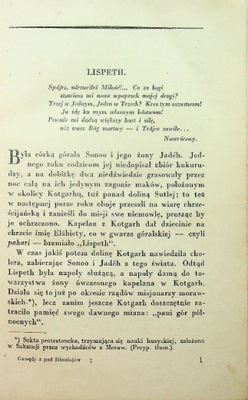 LISPETH.
Spójrz, odrzuciłeś Miłość!... Co za bogi
stawiasz mi nowe wpoprzek mojej drogi?
Trzej w Jednym, Jeden w Trzech? Kres tym oszustwom!
Ja idę ku mym własnym bóstwom!
Pewnie mi dadzą większy hart i siłę,
niż wasz Bóg martwy — i Trójce zawiłe...
Nawrócony.
Była córką górala Sonoo i jego żony Jadéh. Jed-
nego roku rodzicom jej niedopisał zbiór kukuru-
dzy, a na dobitkę dwa niedźwiedzie grasowały przez
noc całą na ich jedynym zagonie maków, położonym
w okolicy Kotgarhu, tuż ponad doliną Sutlej; to też
w następnej porze roku oboje przeszli na wiarę chrze-
ścijańską i zanieśli do misji swe niemowlę, prosząc by
je ochrzczono. Kapelan z Kotgarh dał dziecinie na
chrzcie imię Elżbiety, co w gwarze góralskiej — czyli
pahari — brzmiało „Lispeth".
W czas jakiś potem dolinę Kotgarh nawiedziła cho-
lera, zabierając Sonoo i Jadéh z tego świata. Odtąd
Lispeth była napoły służącą, a napoły damą do to-
warzystwa żony ówczesnego kapelana w Kotgarh.
Działo się to już po okresie rządów misjonarzy moraw-
skich.*), lecz zanim jeszcze Kotgarh doszczętnie za-
traciło pamięć swego dawnego miana: „pani gór pół-
nocnych".
*) Sekta protestancka, trzymająca się nauki husyckiej, założona
w Saksonji przez wychodźców z Moraw. (Przyp. tłum.).
Gawędy z pod Himalajów 1
1